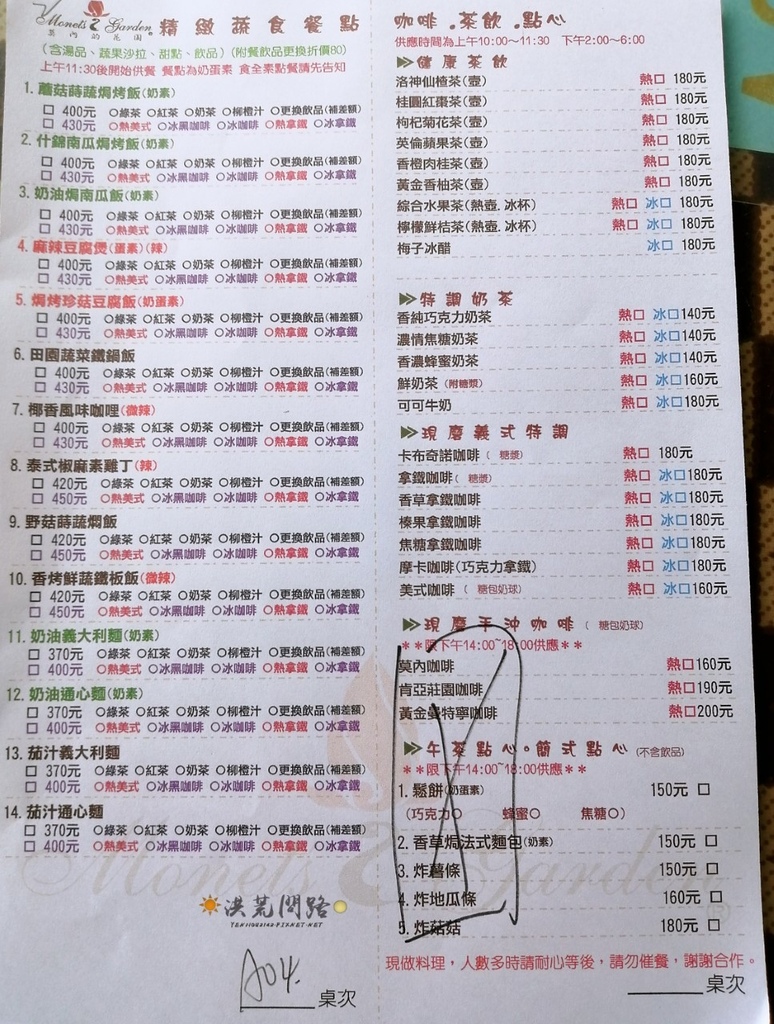 Monet's Garden 精緻蔬食餐點
莫內的花園
(含湯品、蔬果沙拉、甜點、飲品)(附餐飲品更換折價80)
上午11:30後開始供餐 餐點為奶蛋素 食全素點餐請先告知
1. 蘑菇蒔蔬焗烤飯(奶素)
□ 400元 ○綠茶 ○紅茶 ○奶茶 ○柳橙汁 ○更換飲品(補差額)
□ 430元 ○熱美式 ○冰黑咖啡 ○冰咖啡 ○熱拿鐵 ○冰拿鐵
2. 什錦南瓜焗烤飯(奶素)
□ 400元 ○綠茶 ○紅茶 ○奶茶 ○柳橙汁 ○更換飲品(補差額)
□ 430元 ○熱美式 ○冰黑咖啡 ○冰咖啡 ○熱拿鐵 ○冰拿鐵
3. 奶油焗南瓜飯(奶素)
□ 400元 ○綠茶 ○紅茶 ○奶茶 ○柳橙汁 ○更換飲品(補差額)
□ 430元 ○熱美式 ○冰黑咖啡 ○冰咖啡 ○熱拿鐵 ○冰拿鐵
4. 麻辣豆腐煲(蛋素)(辣)
□ 400元 ○綠茶 ○紅茶 ○奶茶 ○柳橙汁 ○更換飲品(補差額)
□ 430元 ○熱美式 ○冰黑咖啡 ○冰咖啡 ○熱拿鐵 ○冰拿鐵
5. 焗烤珍菇豆腐飯(奶蛋素)
□ 400元 ○綠茶 ○紅茶 ○奶茶 ○柳橙汁 ○更換飲品(補差額)
□ 430元 ○熱美式 ○冰黑咖啡 ○冰咖啡 ○熱拿鐵 ○冰拿鐵
6. 田園蔬菜鐵鍋飯
□ 400元 ○綠茶 ○紅茶 ○奶茶 ○柳橙汁 ○更換飲品(補差額)
□ 430元 ○熱美式 ○冰黑咖啡 ○冰咖啡 ○熱拿鐵 ○冰拿鐵
7. 椰香風味咖哩(微辣)
□ 400元 ○綠茶 ○紅茶 ○奶茶 ○柳橙汁 ○更換飲品(補差額)
□ 430元 ○熱美式 ○冰黑咖啡 ○冰咖啡 ○熱拿鐵 ○冰拿鐵
8. 泰式椒麻素雞丁(辣)
□ 420元 ○綠茶 ○紅茶 ○奶茶 ○柳橙汁 ○更換飲品(補差額)
□ 450元 ○熱美式 ○冰黑咖啡 ○冰咖啡 ○熱拿鐵 ○冰拿鐵
9. 野菇蒔蔬燜飯
□ 420元 ○綠茶 ○紅茶 ○奶茶 ○柳橙汁 ○更換飲品(補差額)
□ 450元 ○熱美式 ○冰黑咖啡 ○冰咖啡 ○熱拿鐵 ○冰拿鐵
10. 香烤鮮蔬鐵板飯(微辣)
□ 420元 ○綠茶 ○紅茶 ○奶茶 ○柳橙汁 ○更換飲品(補差額)
□ 450元 ○熱美式 ○冰黑咖啡 ○冰咖啡 ○熱拿鐵 ○冰拿鐵
11. 奶油義大利麵(奶素)
□ 370元 ○綠茶 ○紅茶 ○奶茶 ○柳橙汁 ○更換飲品(補差額)
□ 400元 ○熱美式 ○冰黑咖啡 ○冰咖啡 ○熱拿鐵 ○冰拿鐵
12. 奶油通心麵(奶素)
□ 370元 ○綠茶 ○紅茶 ○奶茶 ○柳橙汁 ○更換飲品(補差額)
□ 400元 ○熱美式 ○冰黑咖啡 ○冰咖啡 ○熱拿鐵 ○冰拿鐵
13. 茄汁義大利麵
□ 370元 ○綠茶 ○紅茶 ○奶茶 ○柳橙汁 ○更換飲品(補差額)
□ 400元 ○熱美式 ○冰黑咖啡 ○冰咖啡 ○熱拿鐵 ○冰拿鐵
14. 茄汁通心麵
□ 370元 ○綠茶 ○紅茶 ○奶茶 ○柳橙汁 ○更換飲品(補差額)
□ 400元 ○熱美式 ○冰黑咖啡 ○冰咖啡 ○熱拿鐵 ○冰拿鐵
Monet's Garden
洪荒問路
A04. 桌次
咖啡.茶飲.點心
供應時間為上午10:00~11:30 下午2:00~6:00
健康茶飲
洛神仙楂茶(壺) 熱□ 180元
桂圓紅棗茶(壺) 熱□ 180元
枸杞菊花茶(壺) 熱□ 180元
英倫蘋果茶(壺) 熱□ 180元
香橙肉桂茶(壺) 熱□ 180元
黃金香柚茶(壺) 熱□ 180元
綜合水果茶(熱壺.冰杯) 熱□ 冰□ 180元
檸檬鮮桔茶(熱壺.冰杯) 熱□ 冰□ 180元
梅子冰醋 冰□ 180元
特調奶茶
香純巧克力奶茶 熱□ 冰□140元
濃情焦糖奶茶 熱□ 冰□140元
香濃蜂蜜奶茶 熱□ 冰□140元
鮮奶茶(附糖漿) 熱□ 冰□160元
可可牛奶 熱□ 冰□180元
現磨義式特調
卡布奇諾咖啡(糖漿) 熱□ 180元
拿鐵咖啡(糖漿) 熱□ 冰□180元
香草拿鐵咖啡 熱□ 冰□180元
榛果拿鐵咖啡 熱□ 冰□180元
焦糖拿鐵咖啡 熱□ 冰□180元
摩卡咖啡(巧克力拿鐵) 熱□ 冰□180元
美式咖啡(糖包奶球) 熱□ 冰□160元
現磨手沖咖啡(糖包奶球)
**限下午14:00~18:00供應**
莫內咖啡 熱□160元
肯亞莊園咖啡 熱□190元
黃金曼特寧咖啡 熱□200元
午茶點心。簡式點心(不含飲品)
**限下午14:00~18:00供應**
1. 鬆餅(奶蛋素) 150元 □
(巧克力○ 蜂蜜○ 焦糖○)
2. 香草焗法式麵包(奶素) 150元 □
3. 炸薯條 150元 □
4. 炸地瓜條 160元 □
5. 炸菇菇 180元 □
現做料理，人數多時請耐心等後，請勿催餐，謝謝合作。
桌次